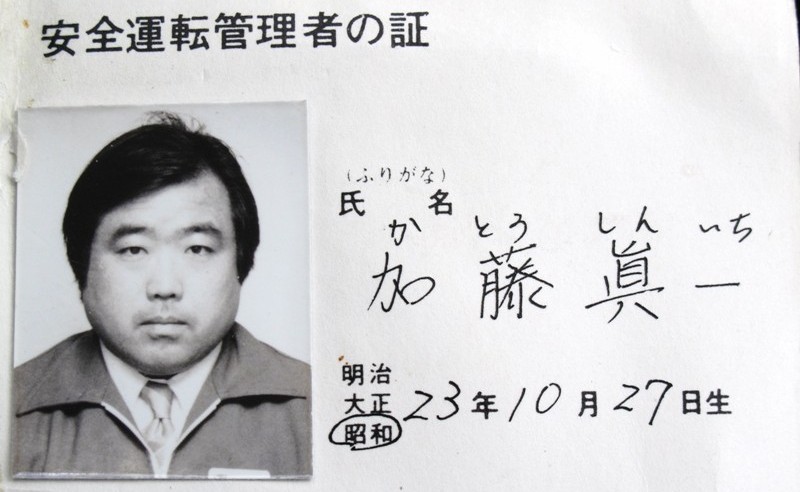 安全運転管理者の証
(ふりがな)
氏名
かとう しんいち
加藤眞一
明治
大正 23年10月27日生
昭和